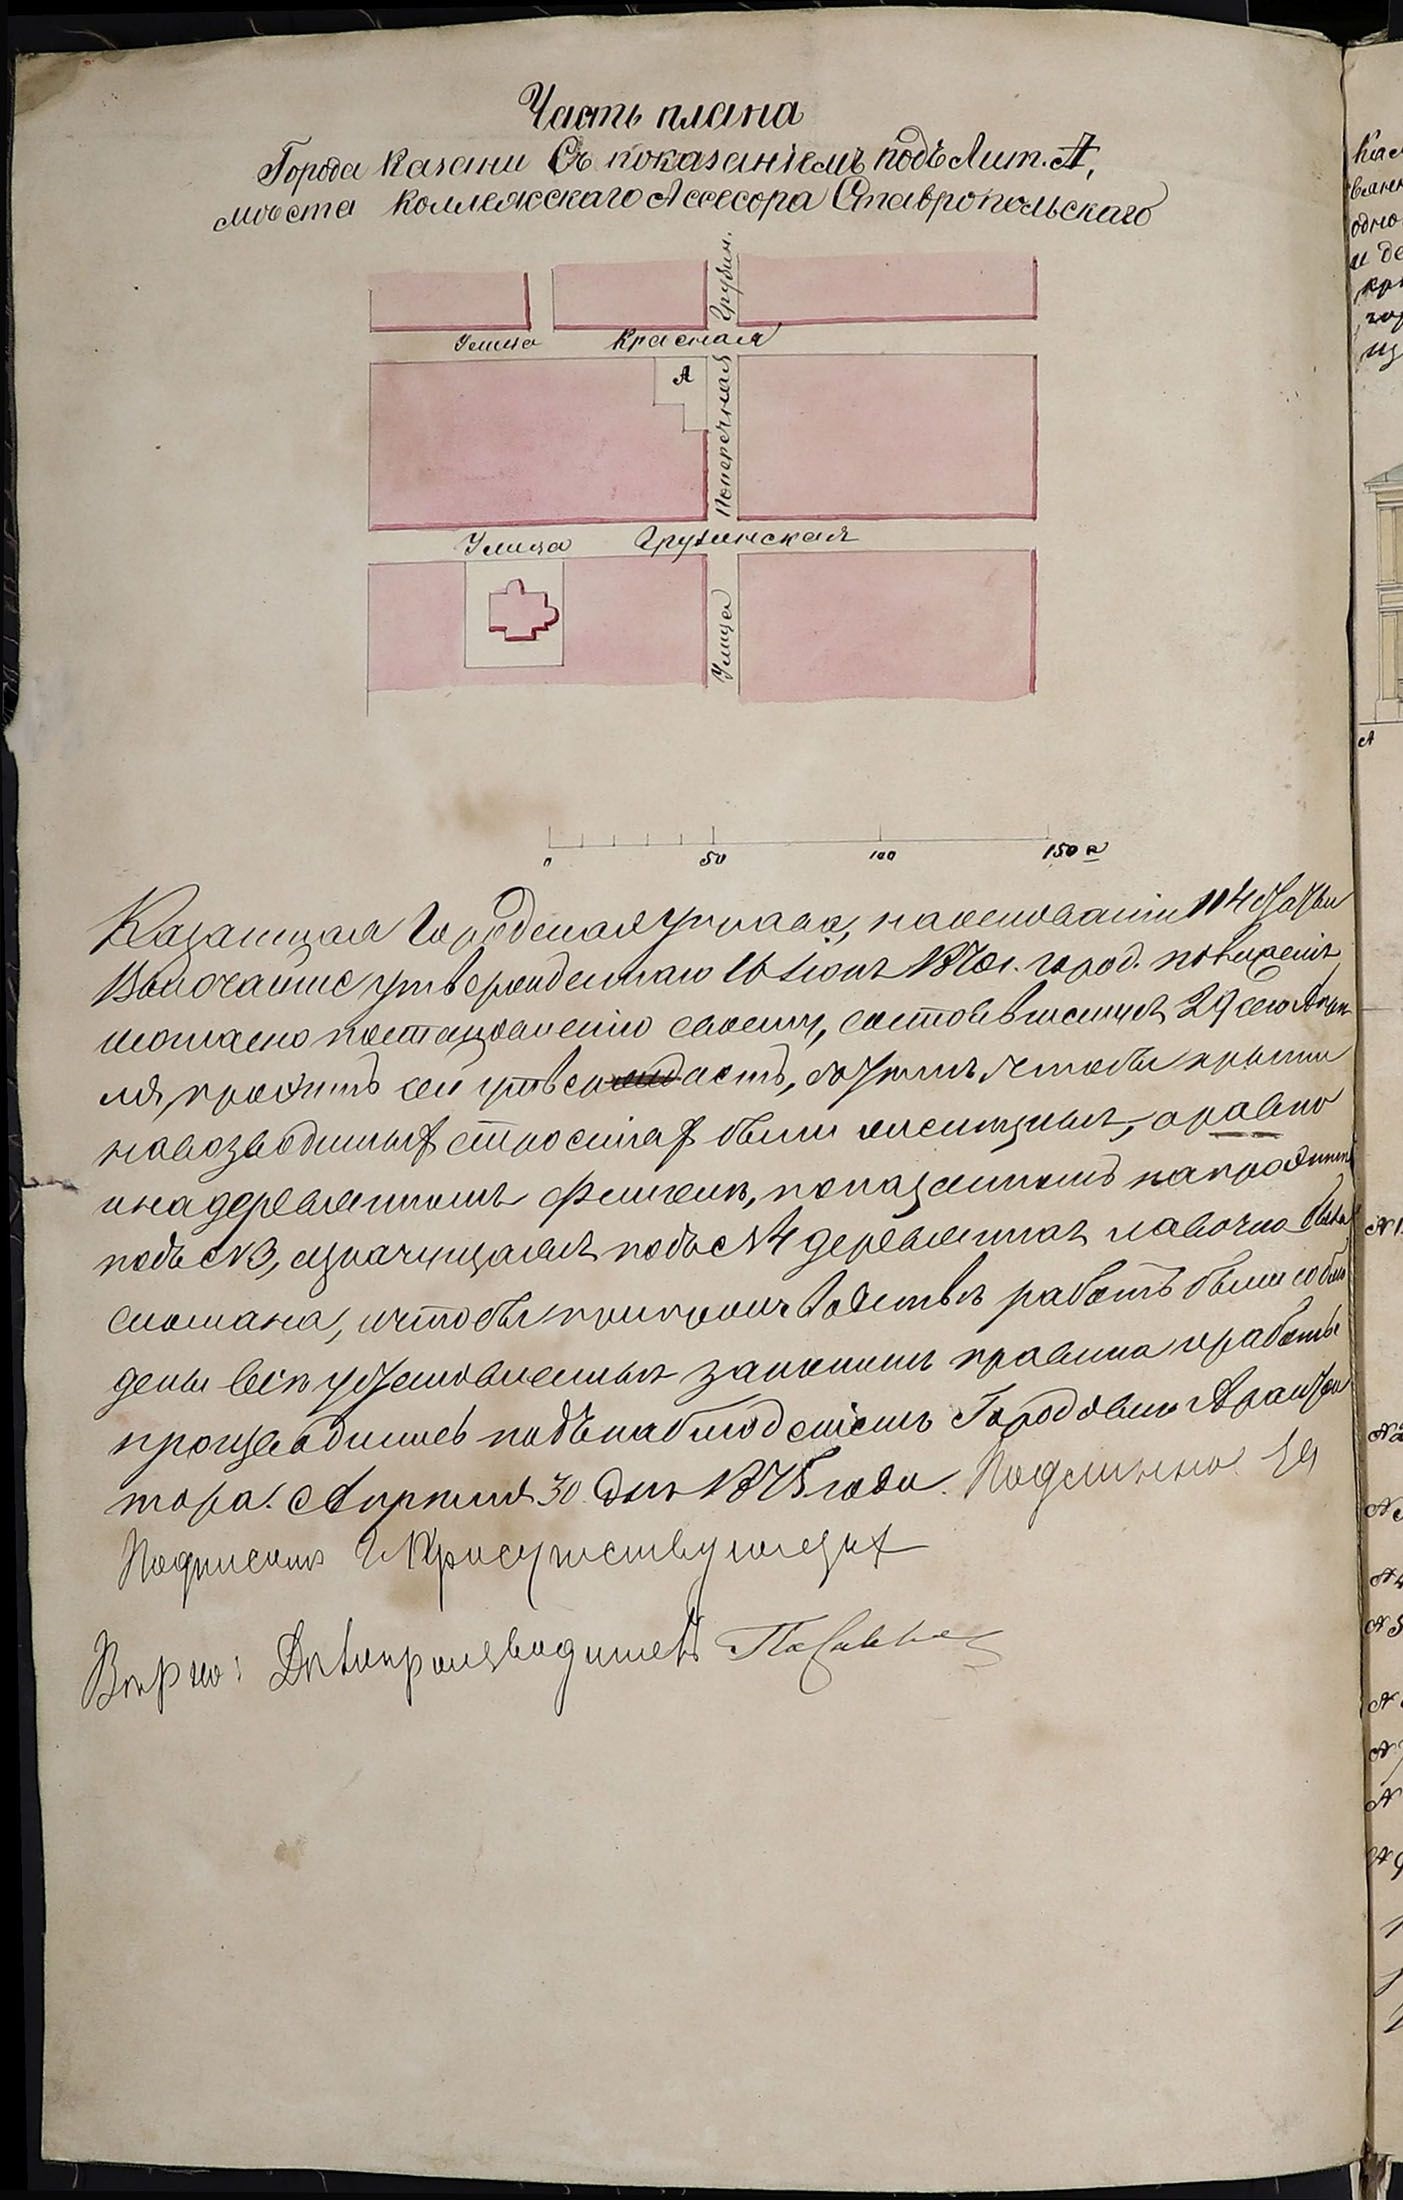 Часть плана
Города Казани Съ показаніемъ подъ Лит. А,
мѣста Коллежскаго Ассесора Ставропольскаго
Грузин.
Улица Красная
А
Поперечная
Улица Грузинская
Улица
0 50 100 150 с
Казанская Городская управа, на основаніи 114 статьи
Высочайше утвержденнаго 16 Іюня 1870 г. город. положенія
согласно постановленію своему, состоявшемуся 29 сего Апрѣ
ля, проэктъ сей утверждаетъ, съ тѣмъ чтобы крыши
на возводимыхъ строеніяхъ были желѣзныя, а равно
и на деревянномъ флигелѣ, показанномъ на проэктѣ
подъ №3, значущаяся подъ №4 деревянная лавочка была
сломана, и чтобы при производствѣ работъ были соблю
дены всѣ установленныя закономъ правила и работы
производились подъ наблюденіемъ Городоваго Архитек
тора. Апрѣля 30 дня 1875 года. Подлинное за
Подписомъ Г. Присутствующихъ
Вѣрно: Дѣлопроизводитель